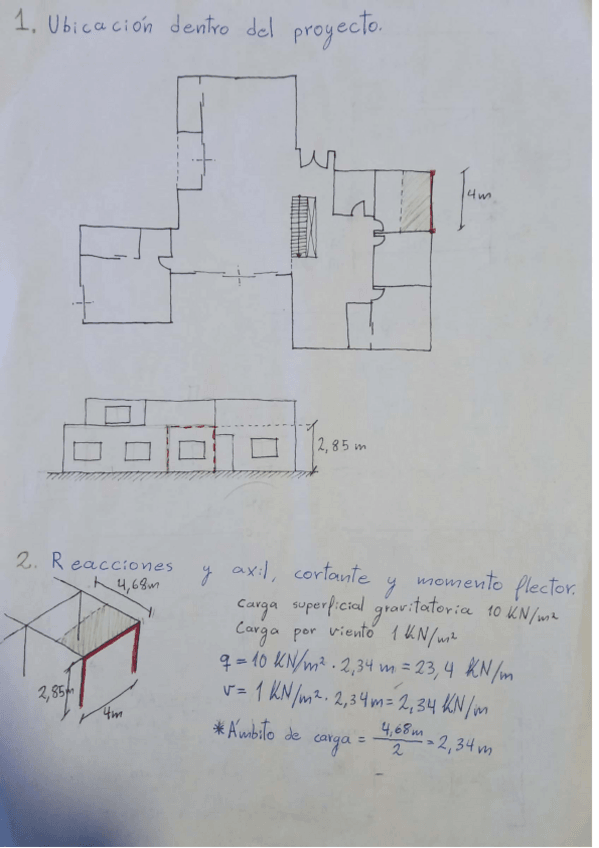 1. Ubicación dentro del proyecto.
4m
2,85 m
2. Reacciones y axil, cortante y momento flector.
4,68m
Carga superficial gravitatoria 10 KN/m²
Carga por viento 1 KN/m²
q = 10 KN/m² · 2,34 m = 23,4 KN/m
v = 1 KN/m² · 2,34m = 2,34 KN/m
2,85m
4m
*Ámbito de carga = 4,68m/2 = 2,34 m